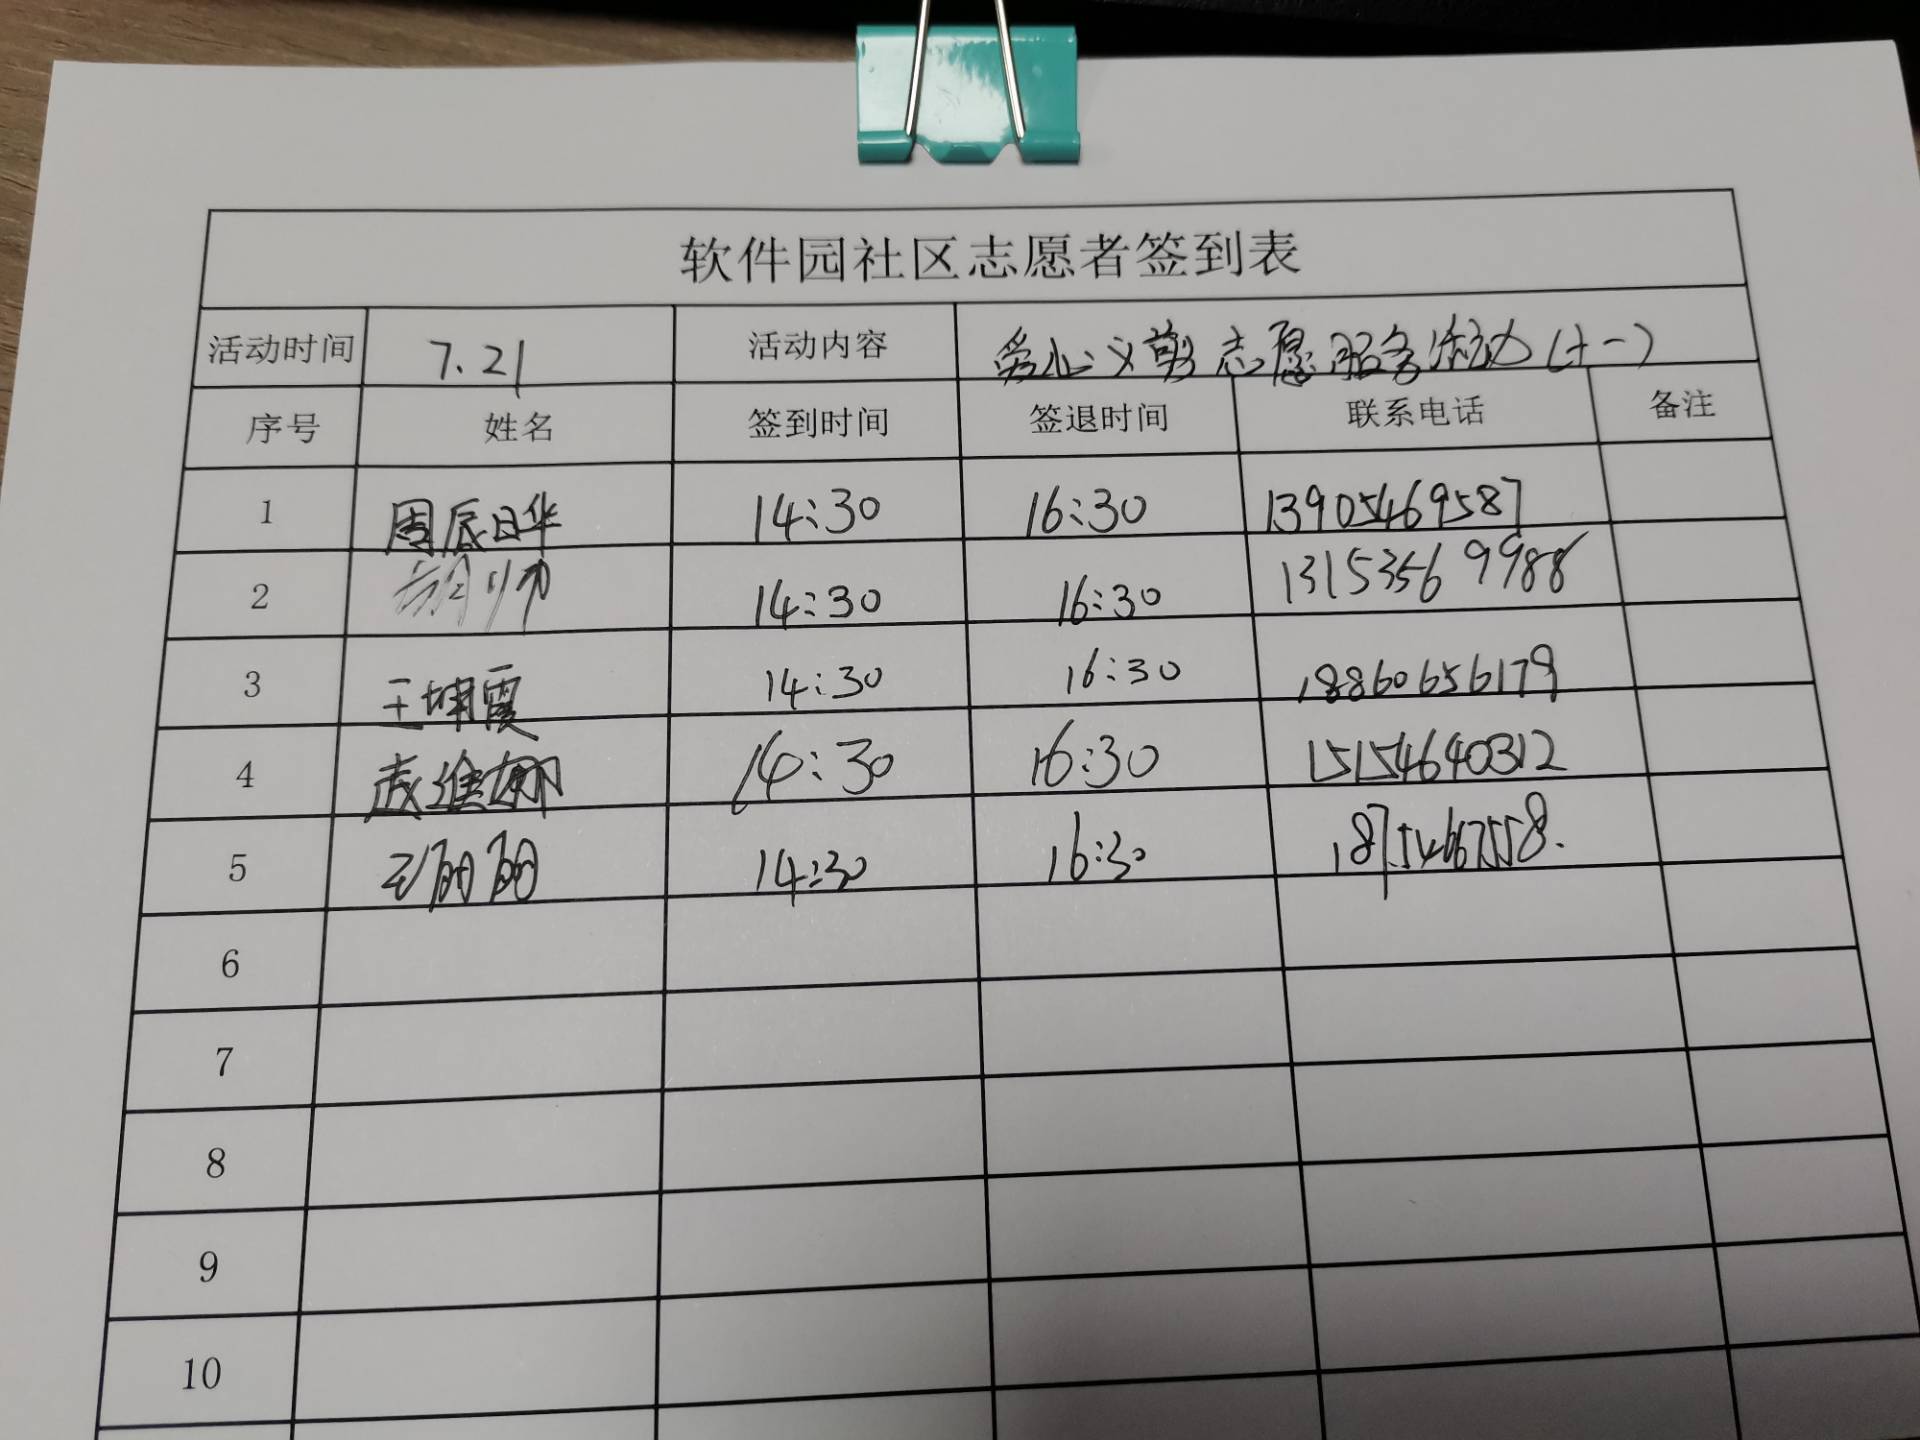 软件园社区志愿者签到表
活动时间 7.21 活动内容 爱心义剪志愿服务活动(十一)
序号 姓名 签到时间 签退时间 联系电话 备注
1 周辰日华 14:30 16:30 13905469587
2 胡帅 14:30 16:30 13153569988
3 王坤霞 14:30 16:30 18860656179
4 14:30 16:30 15154640312
5 王阳阳 14:30 16:30 18754667558.
6
7
8
9
10